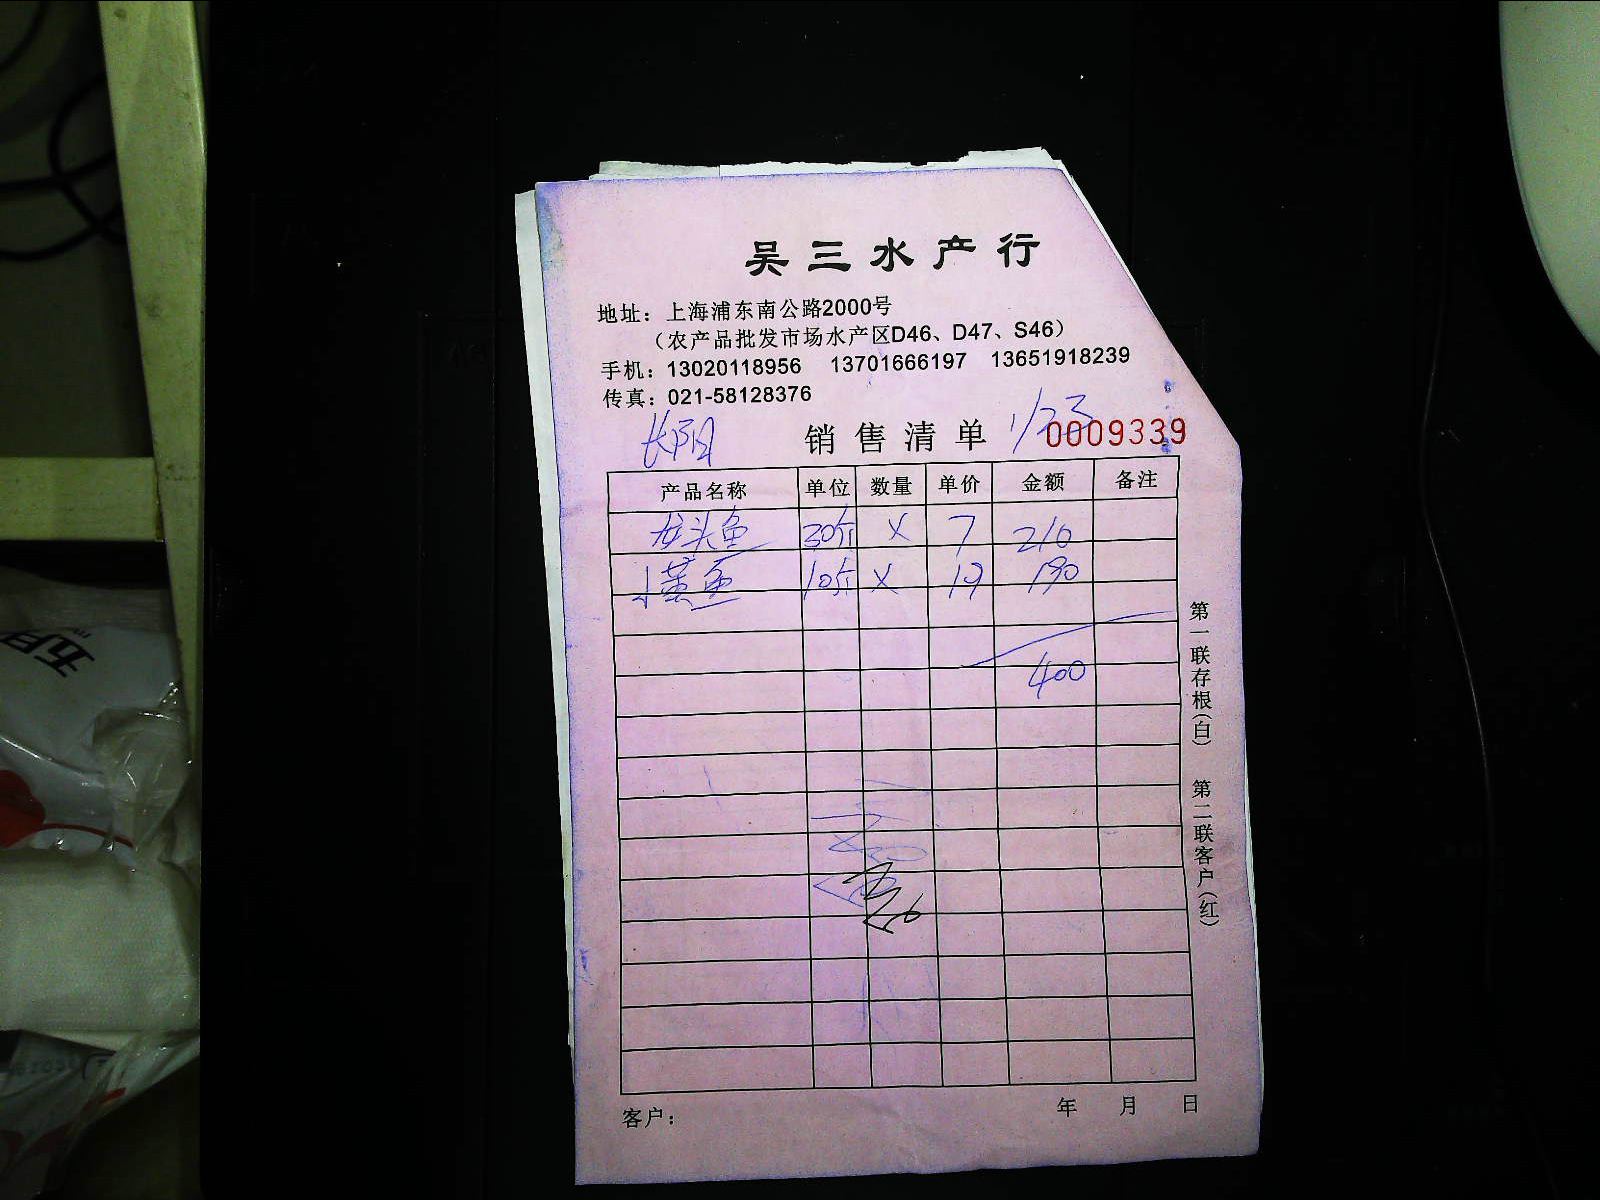 吴三水产行
地址：上海浦东南公路2000号
（农产品批发市场水产区D46、D47、S46）
手机：13020118956 13701666197 13651918239
传真：021-58128376
长阳 销售清单 1/23 0009339
产品名称 单位 数量 单价 金额 备注
龙头鱼 30斤 × 7 210
小黄鱼 10斤 × 19 190
400
第一联存根（白） 第二联客户（红）
客户： 年 月 日
五月